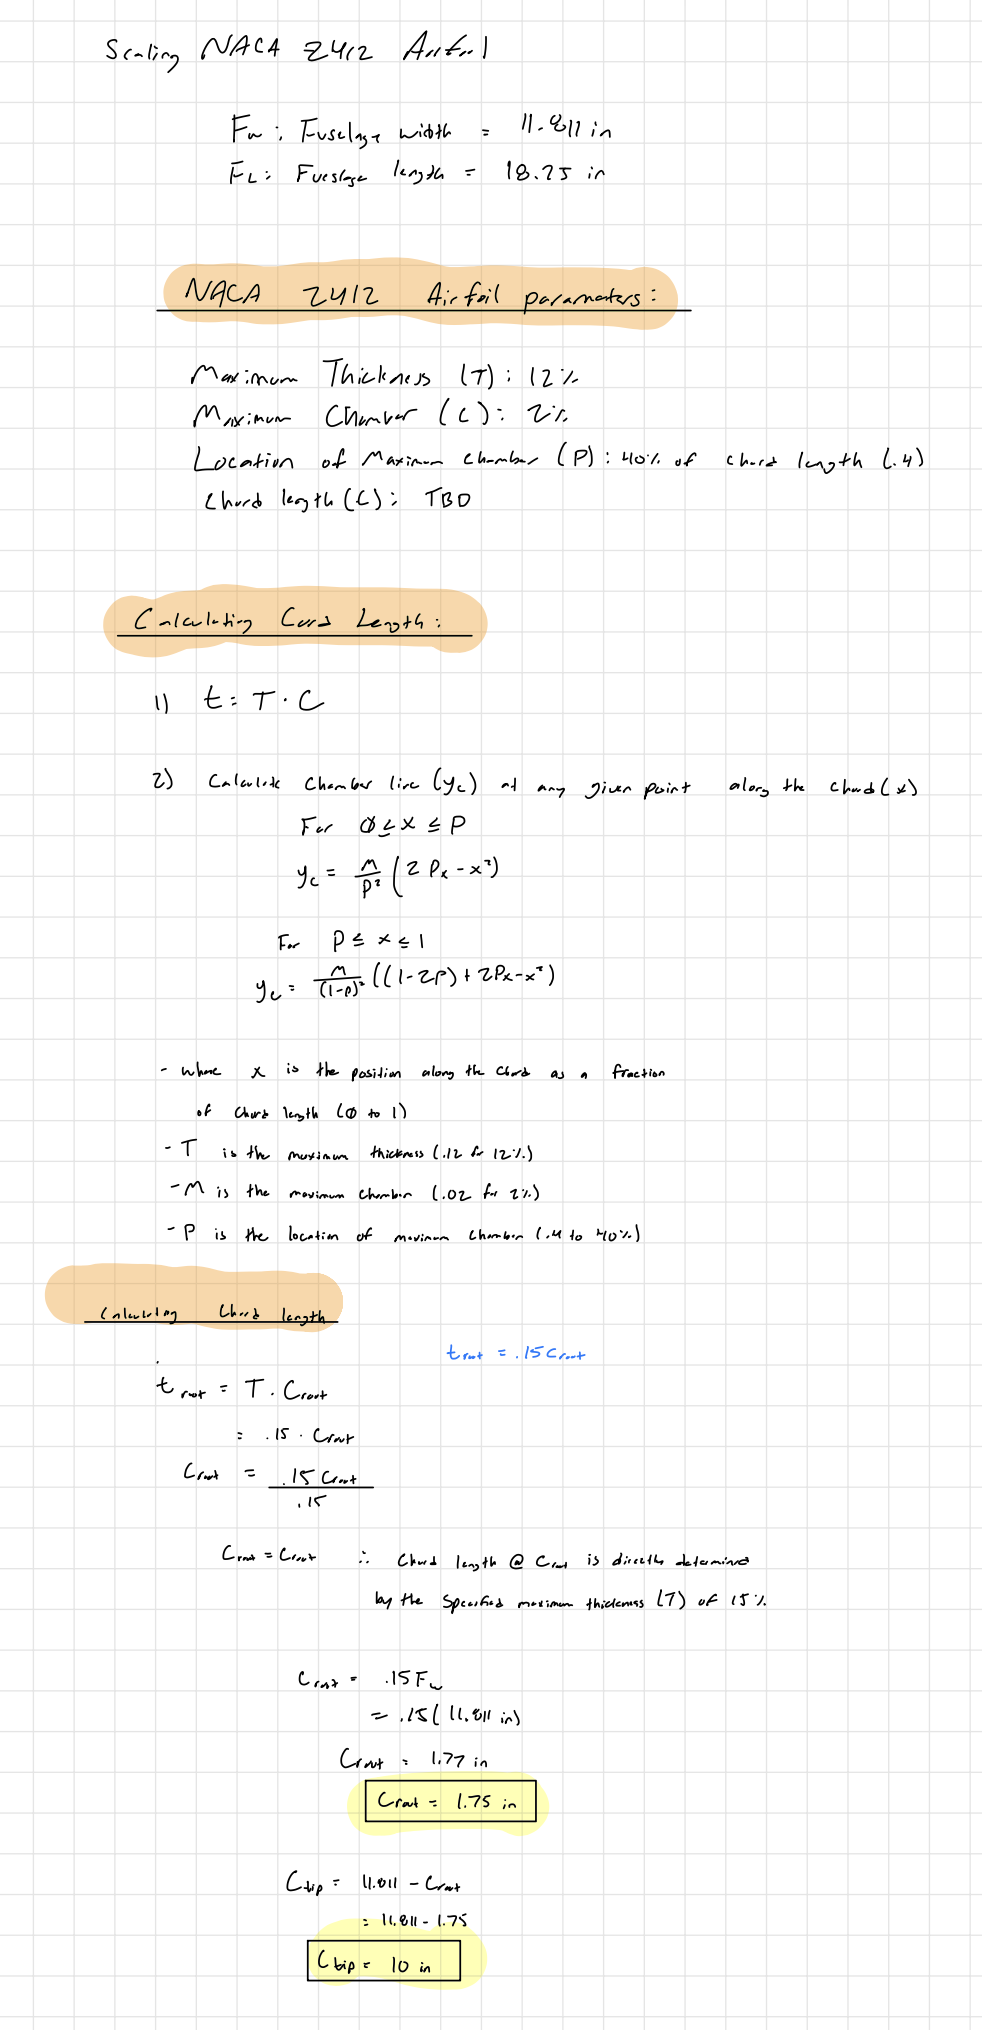 Scaling NACA 2412 Airfoil
Fw: Fuselage width = 11.811 in
FL: Fueslage length = 18.25 in
NACA 2412 Airfoil paramaters:
Maximum Thickness (T): 12%
Maximum Chamber (C): 2%
Location of Maximum Chamber (P): 40% of chord length (.4)
Chord length (C): TBD
Calculating Cord Length:
1) t = T · C
2) Calculate Chamber line (yc) at any given point along the chord (x)
For 0 ≤ x ≤ P
yc = M/P² (2Px - x²)
For P ≤ x ≤ 1
yc = M/(1-P)² ((1-2P) + 2Px - x²)
- where x is the position along the chord as a fraction
of chord length (0 to 1)
- T is the maximum thickness (.12 for 12%)
- M is the maximum chamber (.02 for 2%)
- P is the location of maximum chamber (.4 to 40%)
Calculating Chord length
t root = .15 C root
t root = T · C root
= .15 · C root
C root = .15 C root / .15
C root = C root ∴ Chord length @ C root is directly determined
by the specified maximum thickness (T) of 15%
C root = .15 Fw
= .15 (11.811 in)
C root = 1.77 in
C root = 1.75 in
C tip = 11.811 - C root
= 11.811 - 1.75
C tip = 10 in